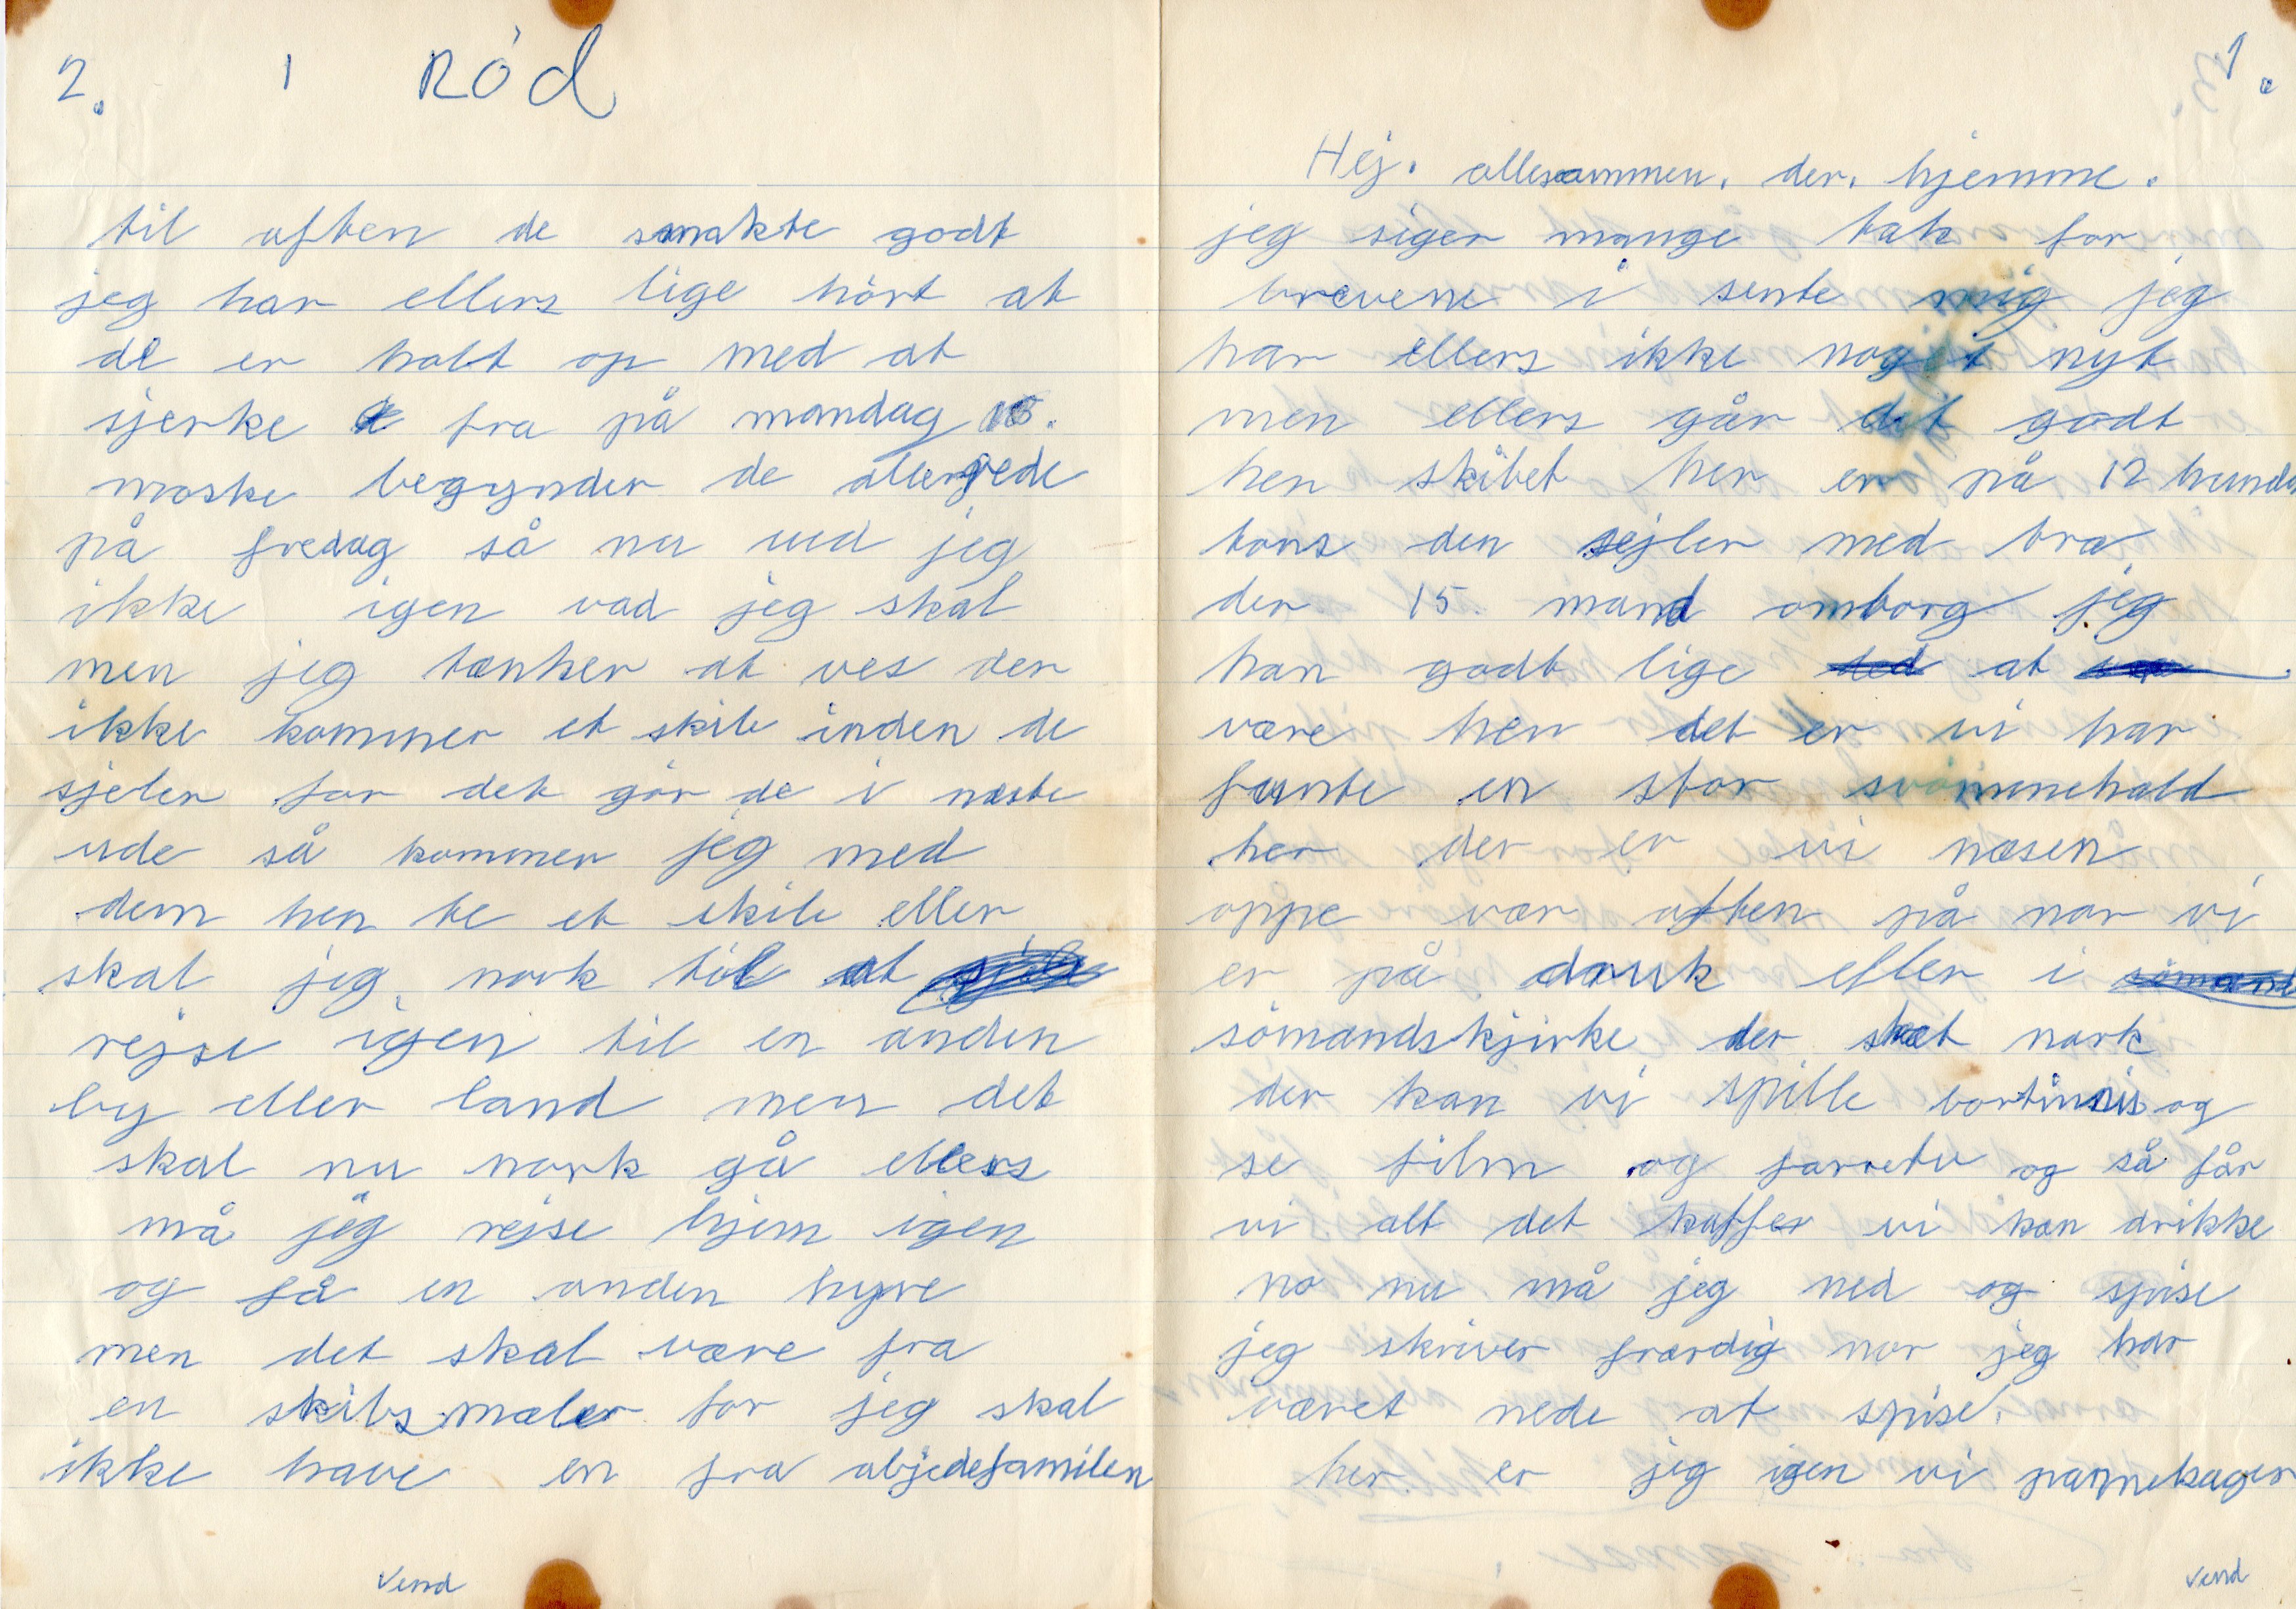 1.
Hej. allesammen. der. hjemme.
jeg siger mange tak for
brevene i sente mig jeg
har ellers ikke noget nyt
men ellers går det godt
her skibet her er på 12 hunde
tons den sejler med træ
der 15. mand omborg jeg
kan godt lige at
være her det er vi har
funte en stor svömmehald
her der er vi næsen
oppe vær aften på nar vi
er på druk eller i
sömandskjirke der skæt nork
der kan vi spille bortinnis og
se film og farvetv og så får
vi alt det kaffer vi kan drikke
no nu må jeg ned og spise
jeg skriver frærdig nor jeg har
været nede at spise.
her er jeg igen vi pannekager
vend
2. 1 RÖd
til aften de smakte godt
jeg har ellers lige hört at
de er holt op med at
sjerke fra på mandag
moske begynder de allerede
på fredag så nu ued jeg
ikke igen vad jeg skal
men jeg tænker at ves der
ikke kommer et skib inden de
sjeler for det gör de i næste
ude så kommer jeg med
dem hen te et skib eller
skal jeg nork til at
rejse igen til en anden
by eller land men det
skal nu nork gå ellers
må jeg rejse hjem igen
og få en anden hyre
men det skal være fra
en skibs mæler for jeg skal
ikke have en fra abjedefamilen
vend